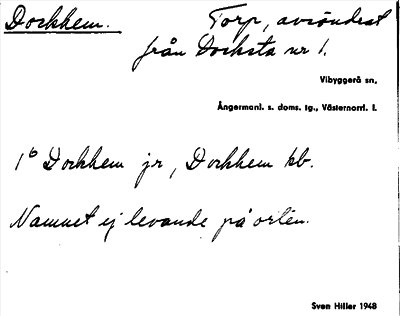 Dockhem. Torp, avsöndrat
från Docksta nr 1.
Vibyggerå sn.
Ångermanl. s. doms. tg., Västernorrl. l.
1⁶ Dockhem jr, Dockhem kb.
Namnet ej levande på orten.
Sven Hiller 1948